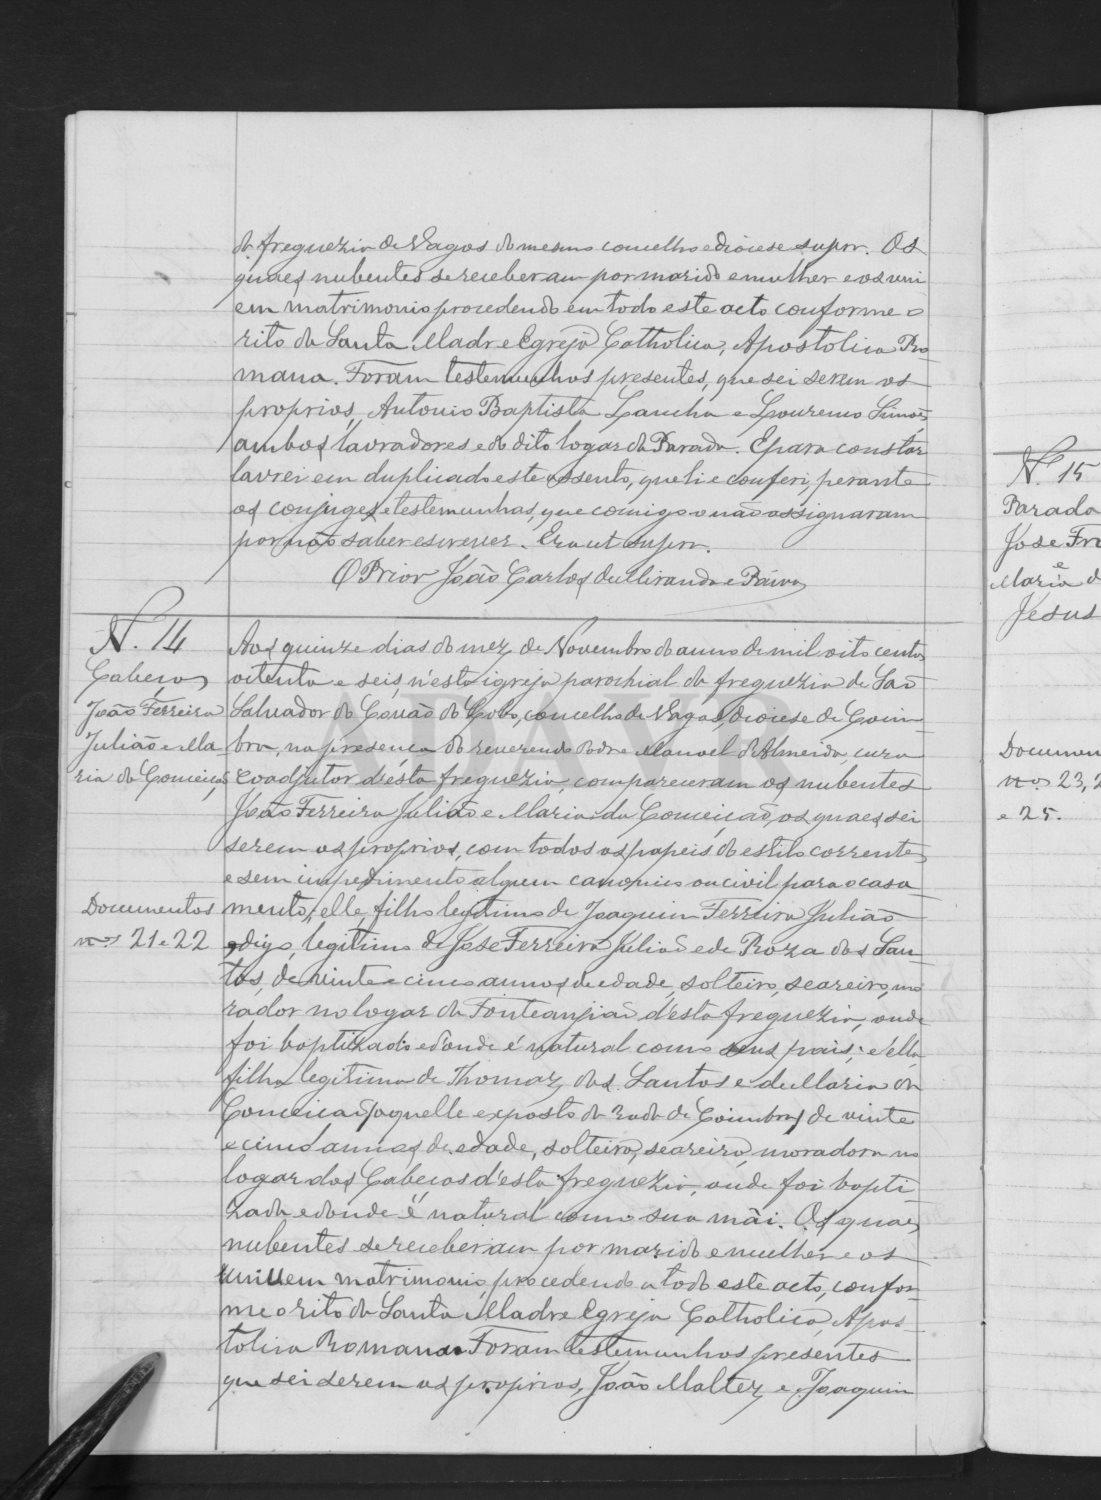 da freguezia de Vagos do mesmo concelho e diocese supra. Os
quaes nubentes se receberam por marido e mulher e os uni
em matrimonio procedendo em todo este acto conforme o
rito da Santa Madre Egreja Catholica, Apostolica Ro-
mana. Foram testemunhas presentes, que sei serem os
proprios, Antonio Baptista Lancha e Lourenço Simões,
ambos lavradores e do dito logar da Parada. E para constar
lavrei em duplicado este assento, que li e conferi, perante
os conjuges e testemunhas, que comigo o não assignaram
por não saber escrever. Era ut supra.
O Prior João Carlos de Miranda e Paiva
N. 14
Cabeços
João Ferreira
Julião e Ma-
ria da Conceição
Documentos
nos 21 e 22
Aos quinze dias do mez de Novembro do anno de mil oito centos
oitenta e seis, n'esta igreja parochial da freguezia de São
Salvador do Covão do Lobo, concelho de Vagos, diocese de Coim-
bra, na presença do reverendo Padre Manoel d'Almeida, cura
coadjutor d'esta freguezia, compareceram os nubentes
João Ferreira Julião e Maria da Conceição, os quaes sei
serem os proprios, com todos os papeis do estilo correntes
e sem impedimento algum canonico ou civil para o casa
mento; elle filho legitimo de Joaquim Ferreira Julião
e digo, legitimo de José Ferreira Julião e de Roza dos San-
tos, de vinte e cinco annos de edade, solteiro, seareiro, mo
rador no logar da Fonteanjião d'esta freguezia, onde
foi baptizado e d'onde é natural como seus pais; e ella
filha legitima de Thomaz dos Santos e de Maria da
Conceição (aquelle exposto da roda de Coimbra) de vinte
e cinco annos de edade, solteira, seareira, moradora no
logar dos Cabeços d'esta freguezia, onde foi bapti-
zada e donde é natural como sua mãi. Os quaes
nubentes se receberam por marido e mulher e os
uni em matrimonio, procedendo a todo este acto, confor-
me o rito da Santa Madre Egreja Catholica, Apos-
tolica Romana. Foram testemunhas presentes
que sei serem os proprios, João Maltez e Joaquim
N. 15
Parada
José Fra
e
Maria d
Jesus
Documen
nos 23, 2
e 25.
ADAVR